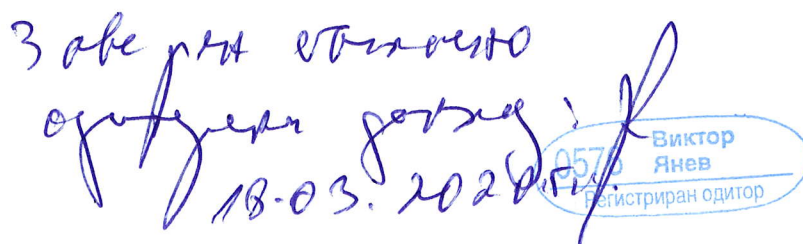 Заверен съгласно
одиторски доклад:
18.03.2020 г.
0576 Виктор
Янев
Регистриран одитор